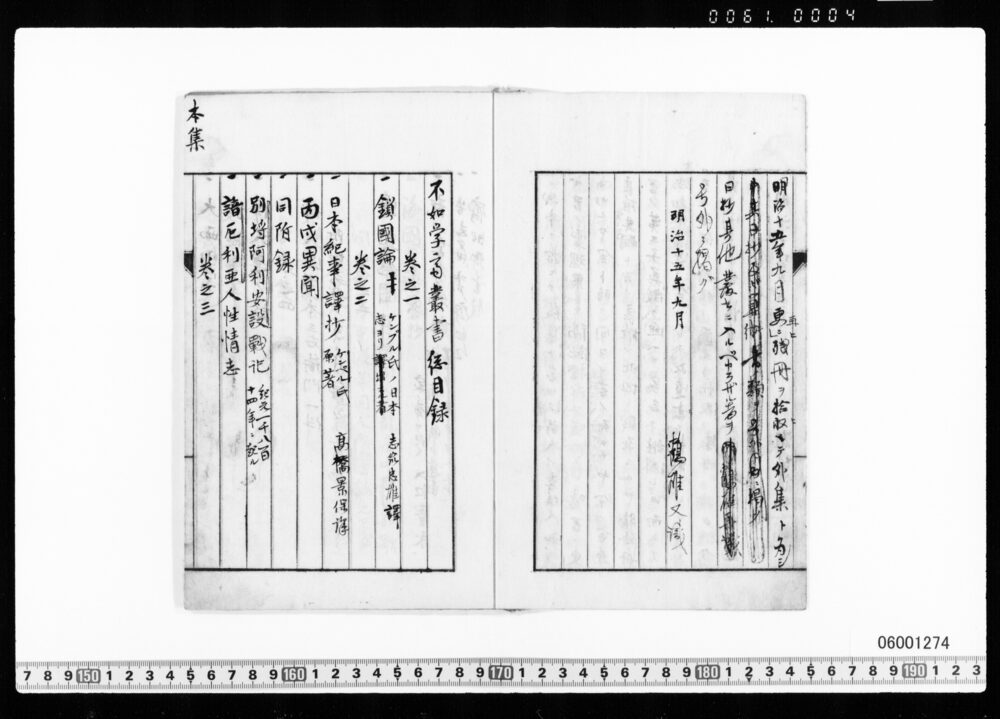 0061.0004
明治十五年九月更ニ残冊ヲ拾収シテ外集ト为シ
再ヒ
日抄其他叢書ニ入ルベカラザル者ヲ
号外ニ掲グ
明治十五年九月
鶴雄又識
本集
不如学斎叢書総目録
巻之一
一鎖國論 ケンプル氏ノ日本 志筑忠雄譯
志ヨリ
巻之二
一日本紀事譯抄 ケンプル氏 高橋景保譯
原著
一丙戌異聞
一同附録
一別埓阿利安設戰記 紀元一千八百
十四年ニ
一諳厄利亜人性情志
巻之三
06001274
7 8 9 150 1 2 3 4 5 6 7 8 9 160 1 2 3 4 5 6 7 8 9 170 1 2 3 4 5 6 7 8 9 180 1 2 3 4 5 6 7 8 9 190 1 2 3